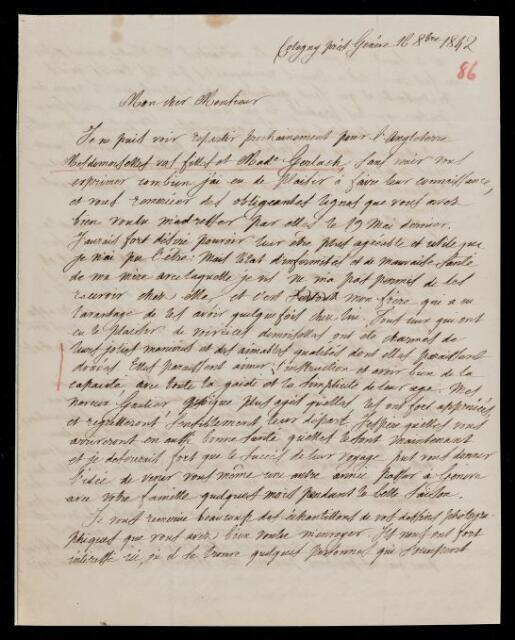 Cologny près Genève 16 8bre 1842
86
Mon cher Monsieur
Je ne puis voir repartir prochainement pour l'Angleterre
Mesdemoiselles vos filles et Made Gerlach, sans venir vous
exprimer combien j'ai eu de plaisir à faire leur connaissance,
et vous remercier des obligeantes lignes que vous avez
bien voulu m'adresser par elles le 19 Mai dernier.
J'aurais fort désiré pouvoir leur être plus agréable et utile que
je n'ai pu l'être: Mais l'état d'infirmités et de mauvaise santé
de ma mère avec laquelle je vis ne m'a pas permis de les
recevoir chez elle, et c'est surtout mon frère qui a eu
l'avantage de les avoir quelquefois chez lui. Tous ceux qui ont
eu le plaisir de voir ces demoiselles ont été charmés de
leurs jolies manières et des aimables qualités dont elles paraissent
douées. Elles paraissent aimer l'instruction et avoir bien de la
capacité, avec toute la gaité et la simplicité de leur age. Mes
nièces Gautier quoique plus agées qu'elles les ont fort appréciées
et regretteront sensiblement leur départ. J'espère qu'elles vous
arriveront en aussi bonne santé qu'elles le sont maintenant
et je désirerais fort que le succès de leur voyage put vous donner
l'idée de venir vous même une autre année passer à Genève
avec votre famille quelques mois pendant la belle saison.
Je vous remercie beaucoup des échantillons de vos dessins photogra-
phiques que vous avez bien voulu m'envoyer. Ils nous ont fort
intéressé ici, où il se trouve quelques personnes qui s'occupent